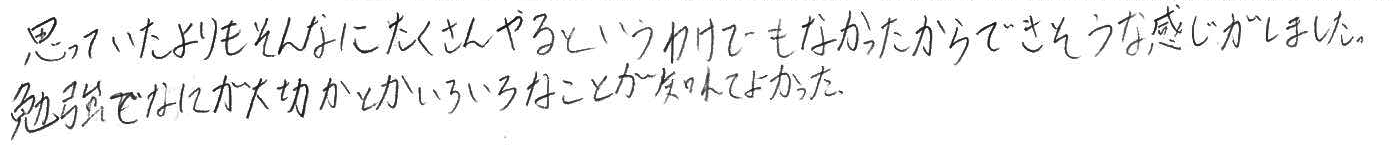 思っていたよりもそんなにたくさんやるというわけでもなかったからできそうな感じがしました。
勉強でなにが大切かとかいろいろなことが知れてよかった。